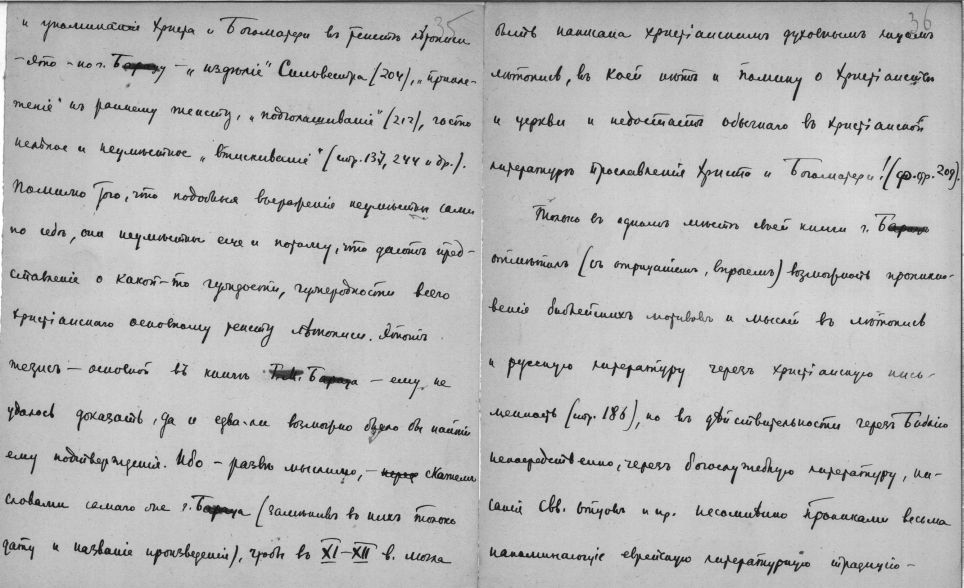 35
и упоминанiе Христа и Богоматери въ текстѣ лѣтописи
– это – по г. Барацу – „издѣлiе" Сильвестра (204), „прило-
женiе" къ раннему тексту, „подголашиванiе" (212), часто
нелѣпое и неумѣстное „втискиванiе" (стр. 137, 244 и др.).
Помимо того, что подобныя выраженiя неумѣстны сами
по себѣ, они неумѣстны еще и потому, что даютъ пред-
ставленiе о какой-то чуждости, чужеродности всего
христiанскаго основному тексту лѣтописи. Этотъ
тезисъ – основной въ книгѣ Г.М. Бараца – ему не
удалось доказать, да и едва-ли возможно было бы найти
ему подтвержденiй. Ибо – развѣ мыслимо, – скажемъ
словами самого же г. Бараца (замѣнивъ въ нихъ только
дату и названiе произведенiя), чтобы въ XI–XII в. могла
36
быть написана христiанскимъ духовнымъ лицомъ
лѣтопись, въ коей нѣтъ и помину о христiанствѣ
и церкви и недостаетъ обычнаго въ христiанской
литературѣ прославленiя Христа и Богоматери! (ср. стр. 209).
Только въ одномъ мѣстѣ своей книги г. Барацъ
отмѣтилъ (съ отрицанiемъ, впрочемъ) возможность проникно-
венiя библейскихъ мотивовъ и мыслей въ лѣтопись
и русскую литературу черезъ христiанскую пись-
менность (стр. 186), но въ дѣйствительности черезъ Библiю
непосредственно, черезъ богослужебную литературу, пи-
санiя Свв. отцовъ и пр. несомнѣнно проникали весьма
напоминающiе еврейскую литературную традицiю –